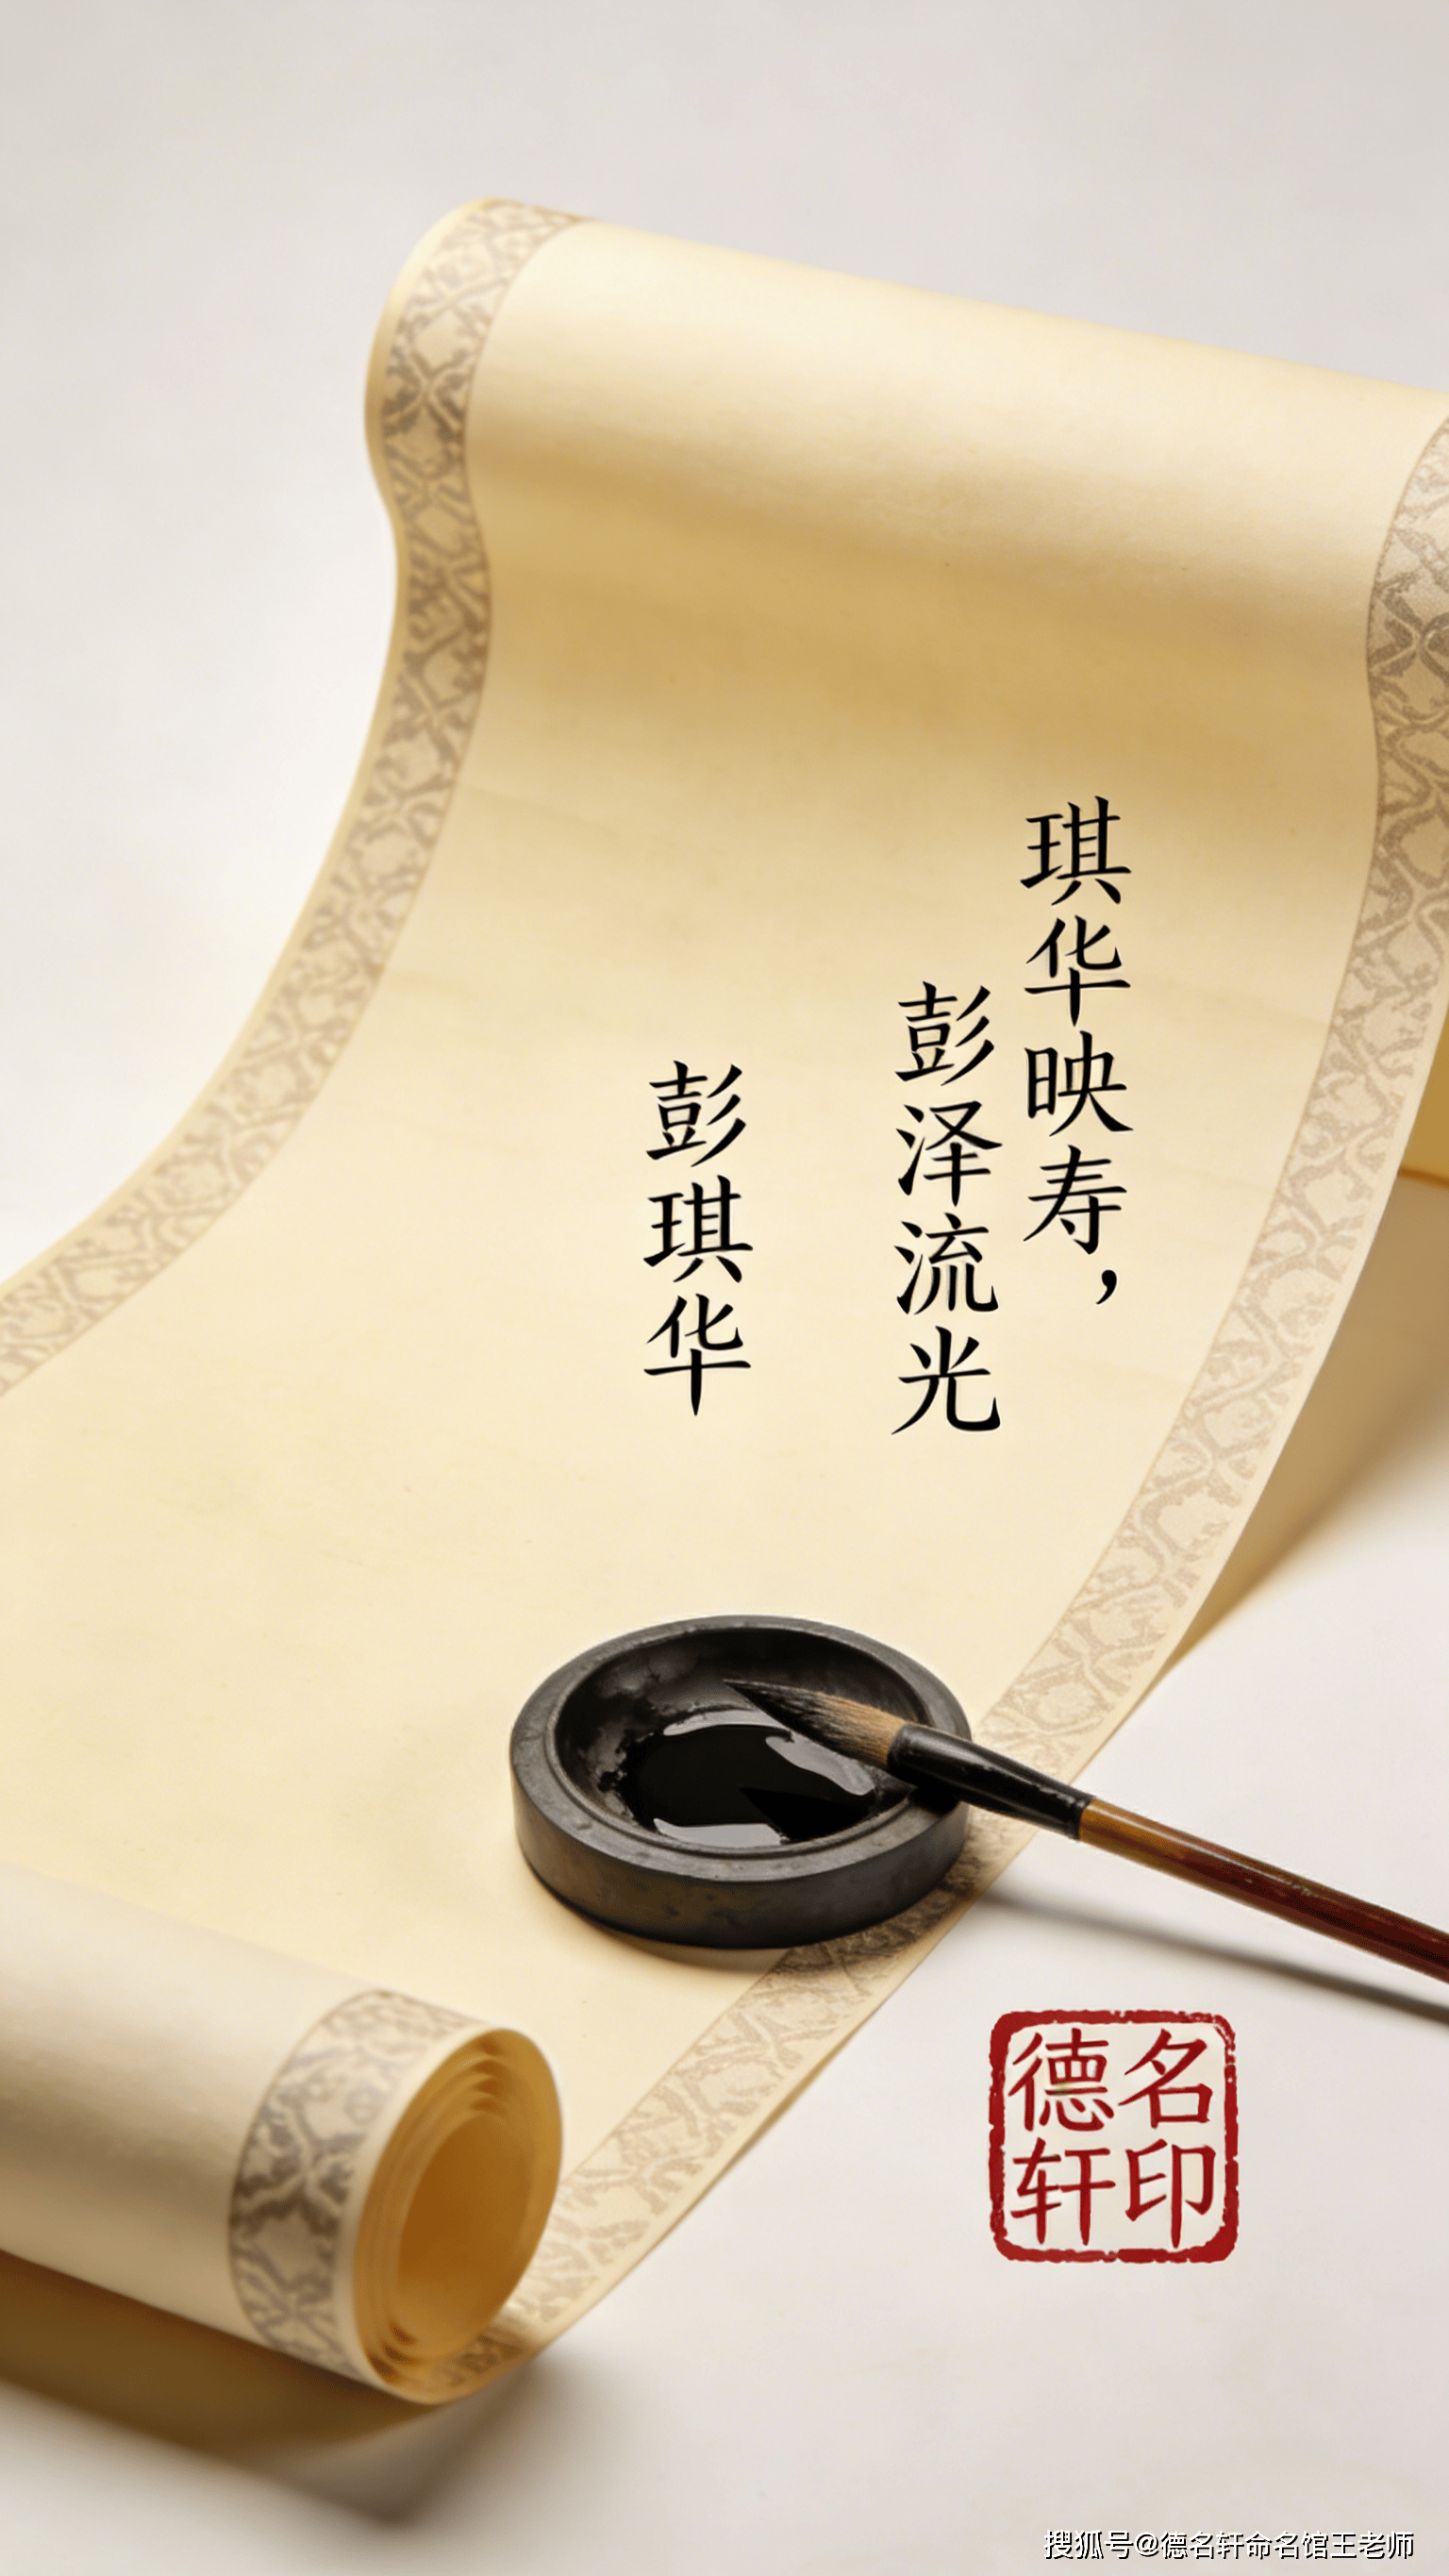 琪华映寿，
彭泽流光
彭琪华
德名
轩印
搜狐号@德名轩命名馆王老师